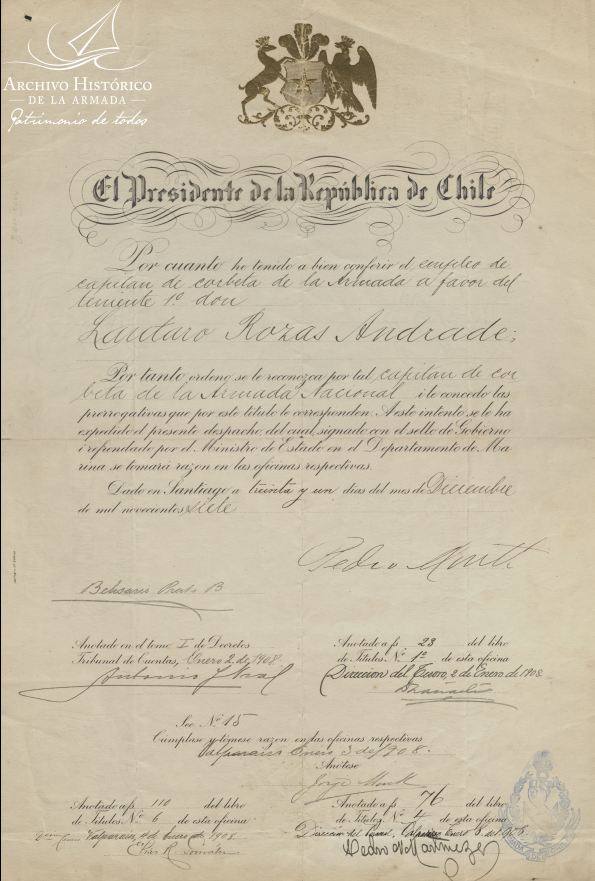 ARCHIVO HISTÓRICO
DE LA ARMADA
Patrimonio de todos
El Presidente de la República de Chile
Por cuanto he tenido a bien conferir el empleo de
capitan de corbeta de la Armada a favor del
teniente 1º don
Lautaro Rozas Andrade;
Por tanto, ordeno se le reconozca por tal capitan de cor
beta de la Armada Nacional i le concedo las
prerrogativas que por este título le corresponden. A este intento, se le ha
expedido el presente despacho, del cual, signado con el sello de Gobierno
i refrendado por el Ministro de Estado en el Departamento de Ma
rina, se tomará razon en las oficinas respectivas.
Dado en Santiago a treinta y un dias del mes de Diciembre
de mil novecientos siete
Pedro Montt
Belisario Prats B
Anotado en el tomo I de Decretos
Tribunal de Cuentas, Enero 2 de 1908
Anotado a fs. 23 del libro
de Títulos Nº 1º de esta oficina
Direccion del Tesoro, 2 de Enero de 1908
Sec Nº 15
Cúmplase y tómese razon en las oficinas respectivas
Valparaiso Enero 3 de 1908.
Anótese
Jorge Montt
Anotado a fs. 110 del libro
de Títulos Nº 6 de esta oficina
Valparaiso, de Enero de 1908
Anotado a fs. 76 del libro
de Títulos Nº de esta oficina
Direccion del Enero de 1908
Pedro N. Martinez